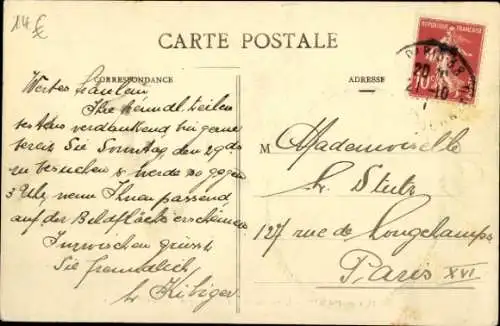 14 €
CARTE POSTALE
CORRESPONDANCE
ADRESSE
REPUBLIQUE FRANÇAISE
Wertes Fräulein
Ihre freundl. Zeilen
bestens verdankend bin gerne
bereit Sie Sonntag den 29 ds
zu besuchen & werde so gegen
3 Uhr, wenn Ihnen passend
auf der Bildfläche erscheinen
Inzwischen grüsst
Sie freundlich,
M Mademoiselle
127 rue de Longchamps
Paris XVI